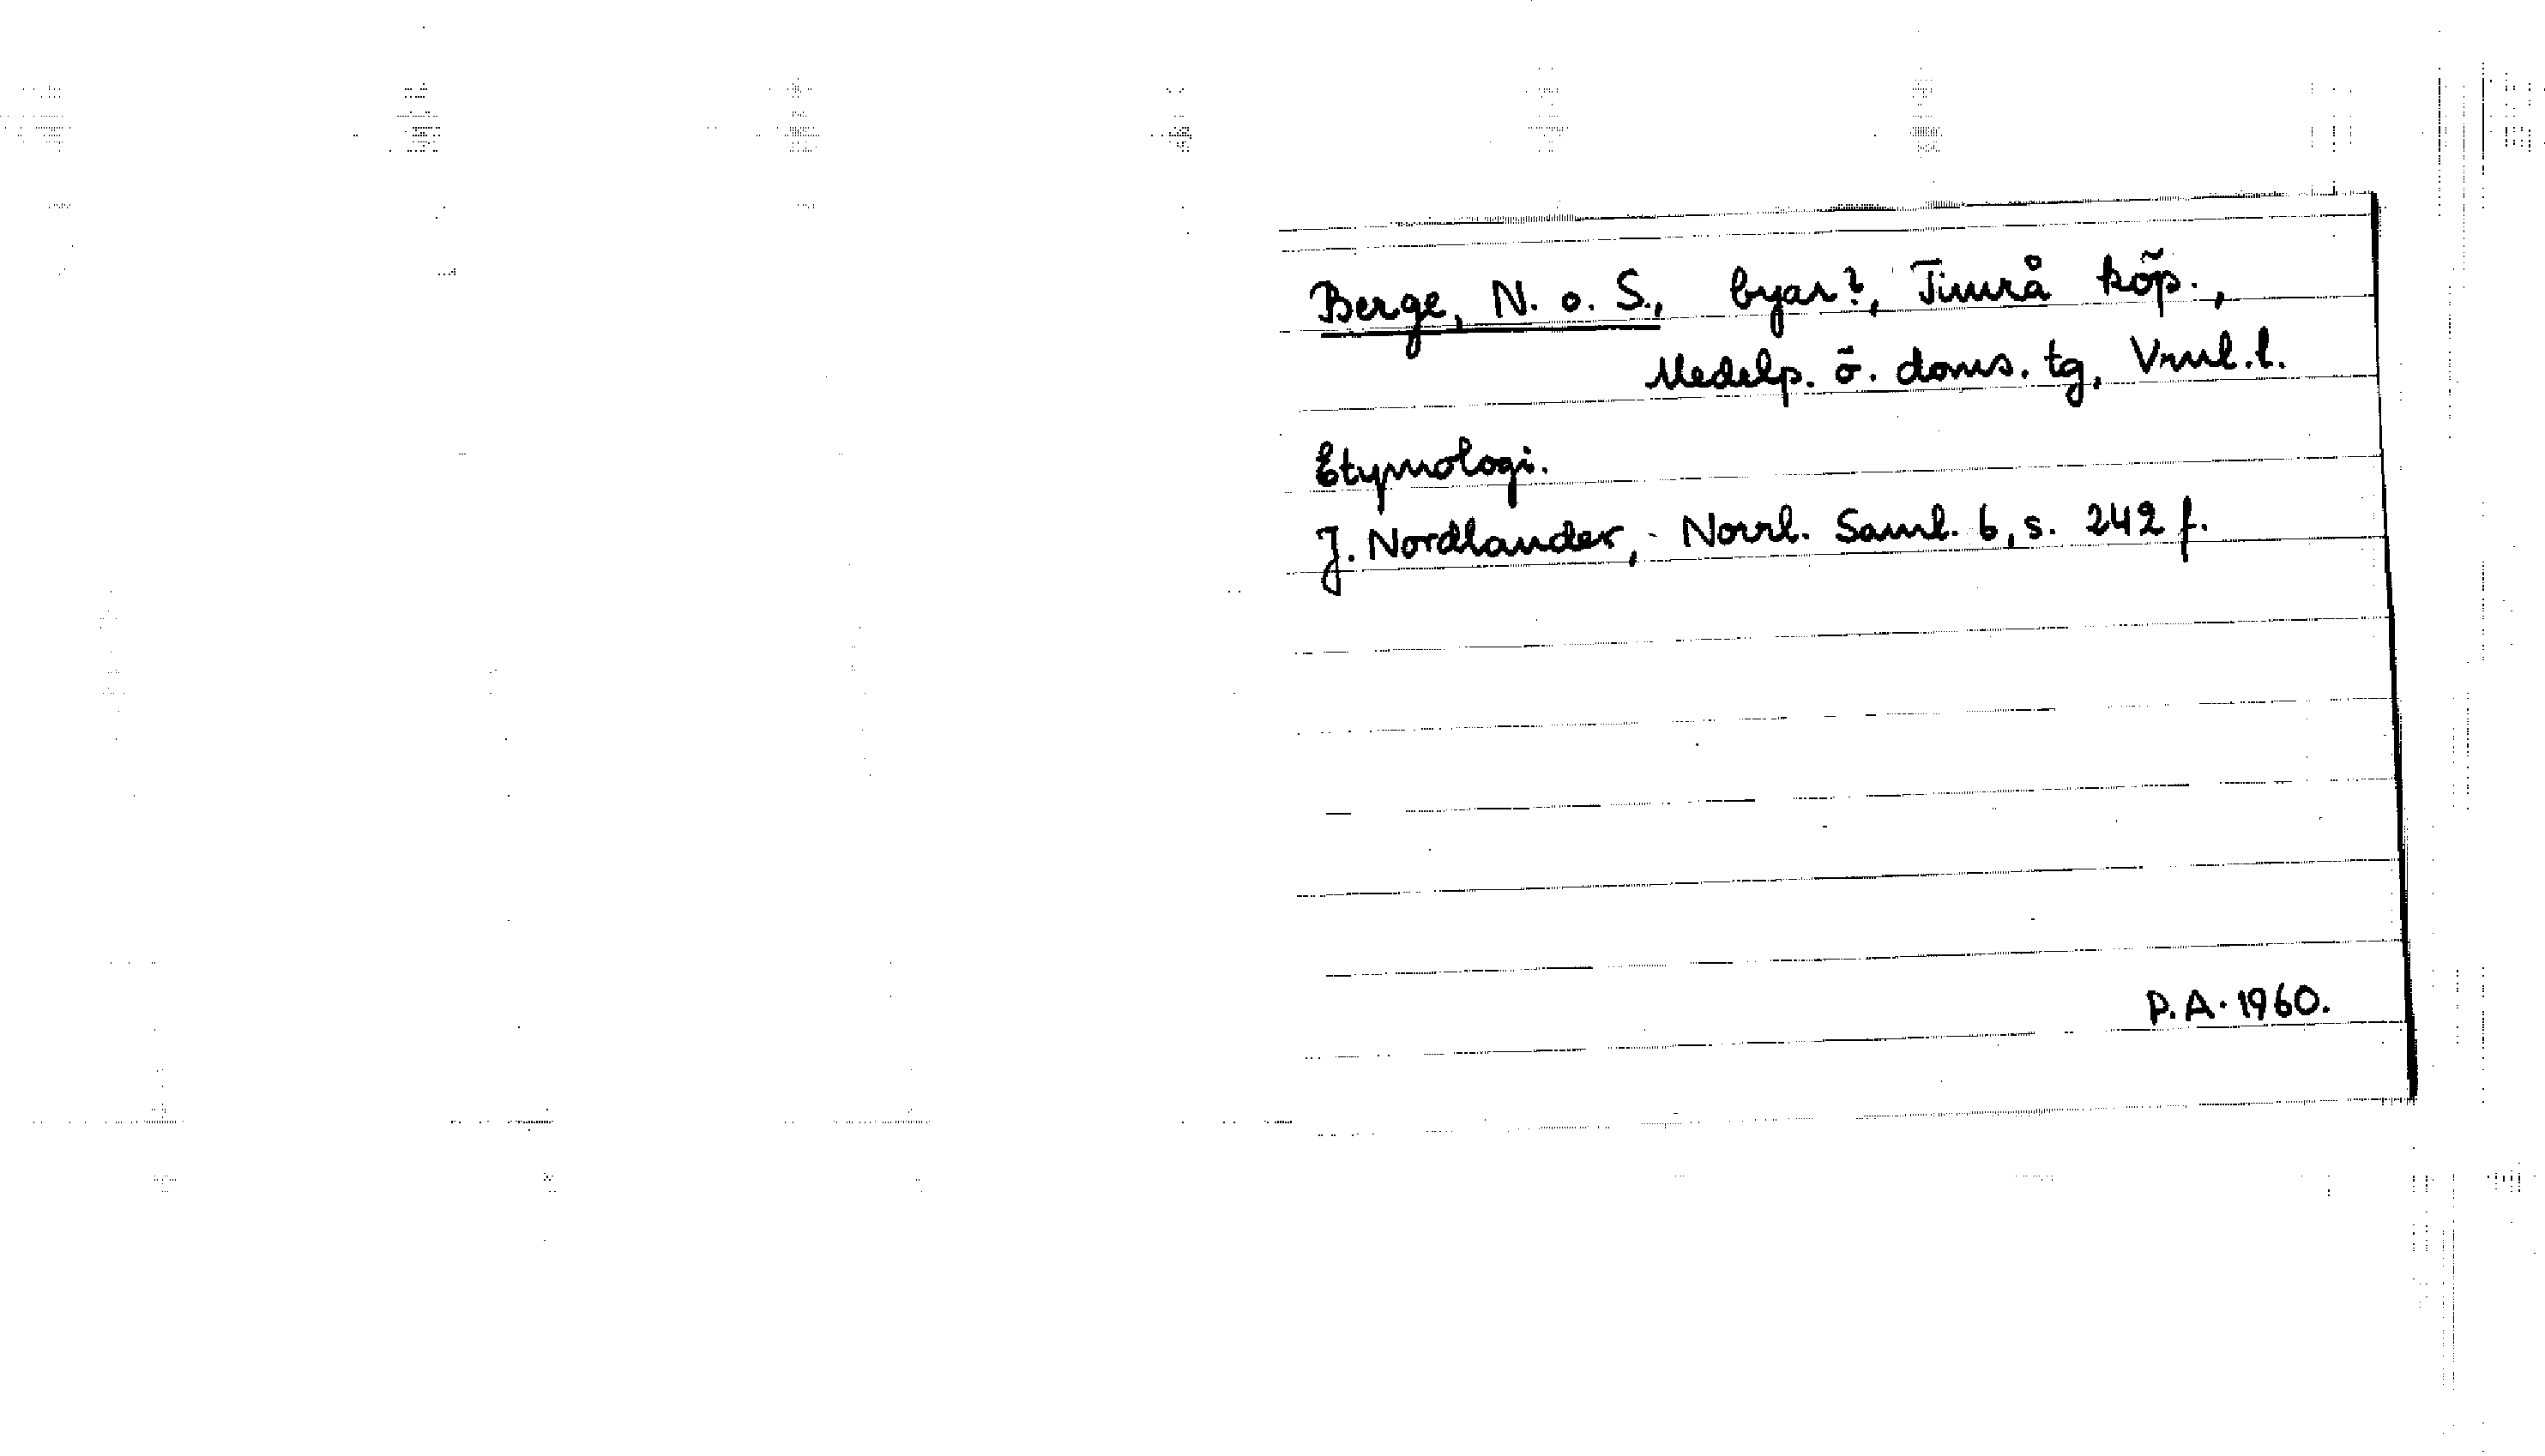 Berge, N. o. S., byar?, Timrå köp.,
Medelp. ö. doms. tg, Vrnl. l.
Etymologi.
J. Nordlander, Norrl. Saml. 6, s. 242 f.
P.A. 1960.